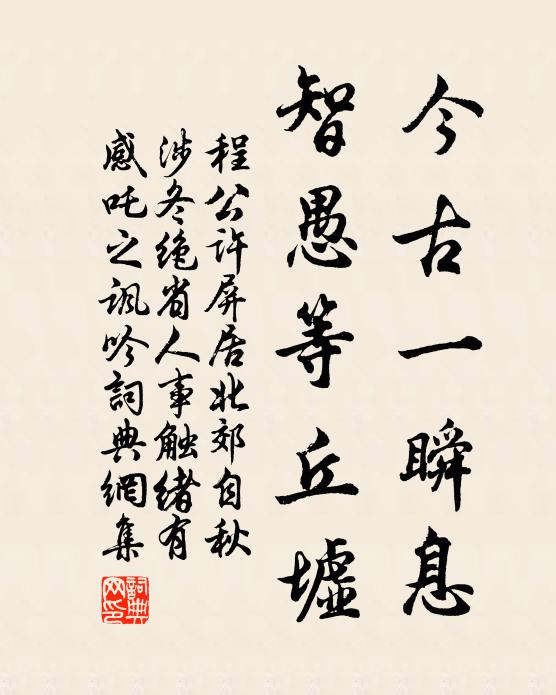 今古一瞬息
智愚等丘墟
程公許屏居北郊自秋
涉冬絶省人事触緒有
感吒之諷吟詞典網集
詞典网印